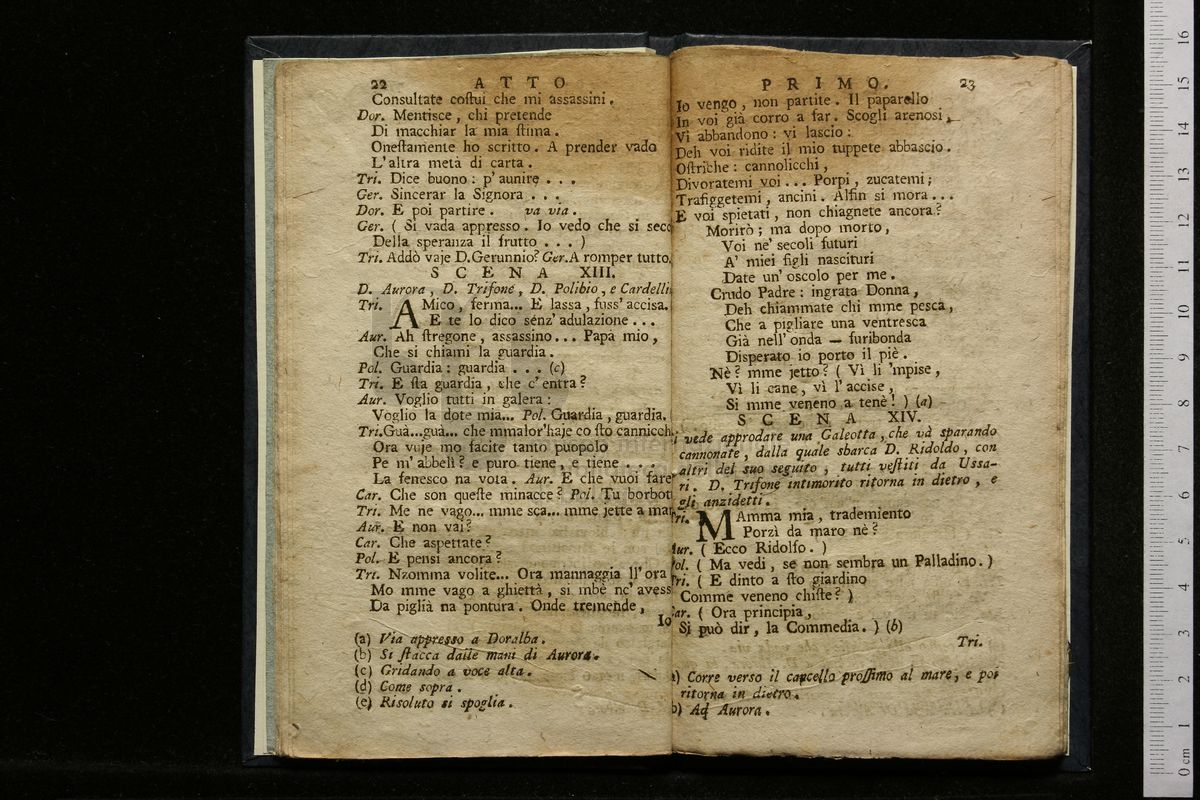 22 A T T O
Consultate coſtui che mi assassini.
Dor. Mentisce, chi pretende
Di macchiar la mia ſtima.
Oneſtamente ho scritto. A prender vado
L'altra metà di carta.
Tri. Dice buono: p'aunire . . .
Ger. Sincerar la Signora . . .
Dor. E poi partire. va via.
Ger. ( Si vada appresso. Io vedo che si secc
Della speranza il frutto . . . )
Tri. Addò vaje D.Gerunnio? Ger.A romper tutto.
S C E N A XIII.
D. Aurora, D. Trifone, D. Polibio, e Cardelli
Tri. AMico, ferma... E lassa, fuss'accisa.
E te lo dico senz'adulazione . . .
Aur. Ah ſtregone, assassino... Papà mio,
Che si chiami la guardia.
Pol. Guardia: guardia . . . (c)
Tri. E ſta guardia, che c'entra?
Aur. Voglio tutti in galera:
Voglio la dote mia... Pol. Guardia, guardia.
Tri.Gua...gua... che mmalor'haje co ſto cannicch
Ora vuje mo facite tanto puopolo
Pe m'abbelì? e puro tiene, e tiene . . .
La fenesco na vota. Aur. E che vuoi fare
Car. Che son queſte minacce? Pol. Tu borbott
Tri. Me ne vago... mme sca... mme jette a mar
Aur. E non vai?
Car. Che aspettate?
Pol. E pensi ancora?
Tri. Nzomma volite... Ora mannaggia ll'ora
Mo mme vago a ghiettà, si mbè nc'avess
Da piglià na pontura. Onde tremende,
Io
(a) Via appresso a Doralba.
(b) Si ſtacca dalle mani di Aurora.
(c) Gridando a voce alta.
(d) Come sopra.
(e) Risoluto si spoglia.
P R I M O. 23
Io vengo, non partite. Il paparello
In voi già corro a far. Scogli arenosi,
Vi abbandono: vi lascio:
Deh voi ridite il mio tuppete abbascio.
Oſtriche: cannolicchi,
Divoratemi voi... Porpi, zucatemi;
Trafiggetemi, ancini. Alfin si mora...
E voi spietati, non chiagnete ancora?
Morirò; ma dopo morto,
Voi ne' secoli futuri
A' miei figli nascituri
Date un'oscolo per me.
Crudo Padre: ingrata Donna,
Deh chiammate chi mme pesca,
Che a pigliare una ventresca
Già nell'onda — furibonda
Disperato io porto il piè.
Nè? mme jetto? ( Vì li 'mpise,
Vì li cane, vì l'accise,
Si mme veneno a tenè! ) (a)
S C E N A XIV.
i vede approdare una Galeotta, che và sparando
cannonate, dalla quale sbarca D. Ridoldo, con
altri del suo seguito, tutti veſtiti da Ussa-
ri. D. Trifone intimorito ritorna in dietro, e
gli anzidetti.
Tri. MAmma mia, trademiento
Porzì da maro nè?
Aur. ( Ecco Ridolfo. )
Pol. ( Ma vedi, se non sembra un Palladino. )
Tri. ( E dinto a ſto giardino
Comme veneno chiſte? )
Car. ( Ora principia,
Si può dir, la Commedia. ) (b)
Tri.
a) Corre verso il cancello proſſimo al mare, e poi
ritorna in dietro.
b) Ad Aurora.
0 cm 1 2 3 4 5 6 7 8 9 10 11 12 13 14 15 16